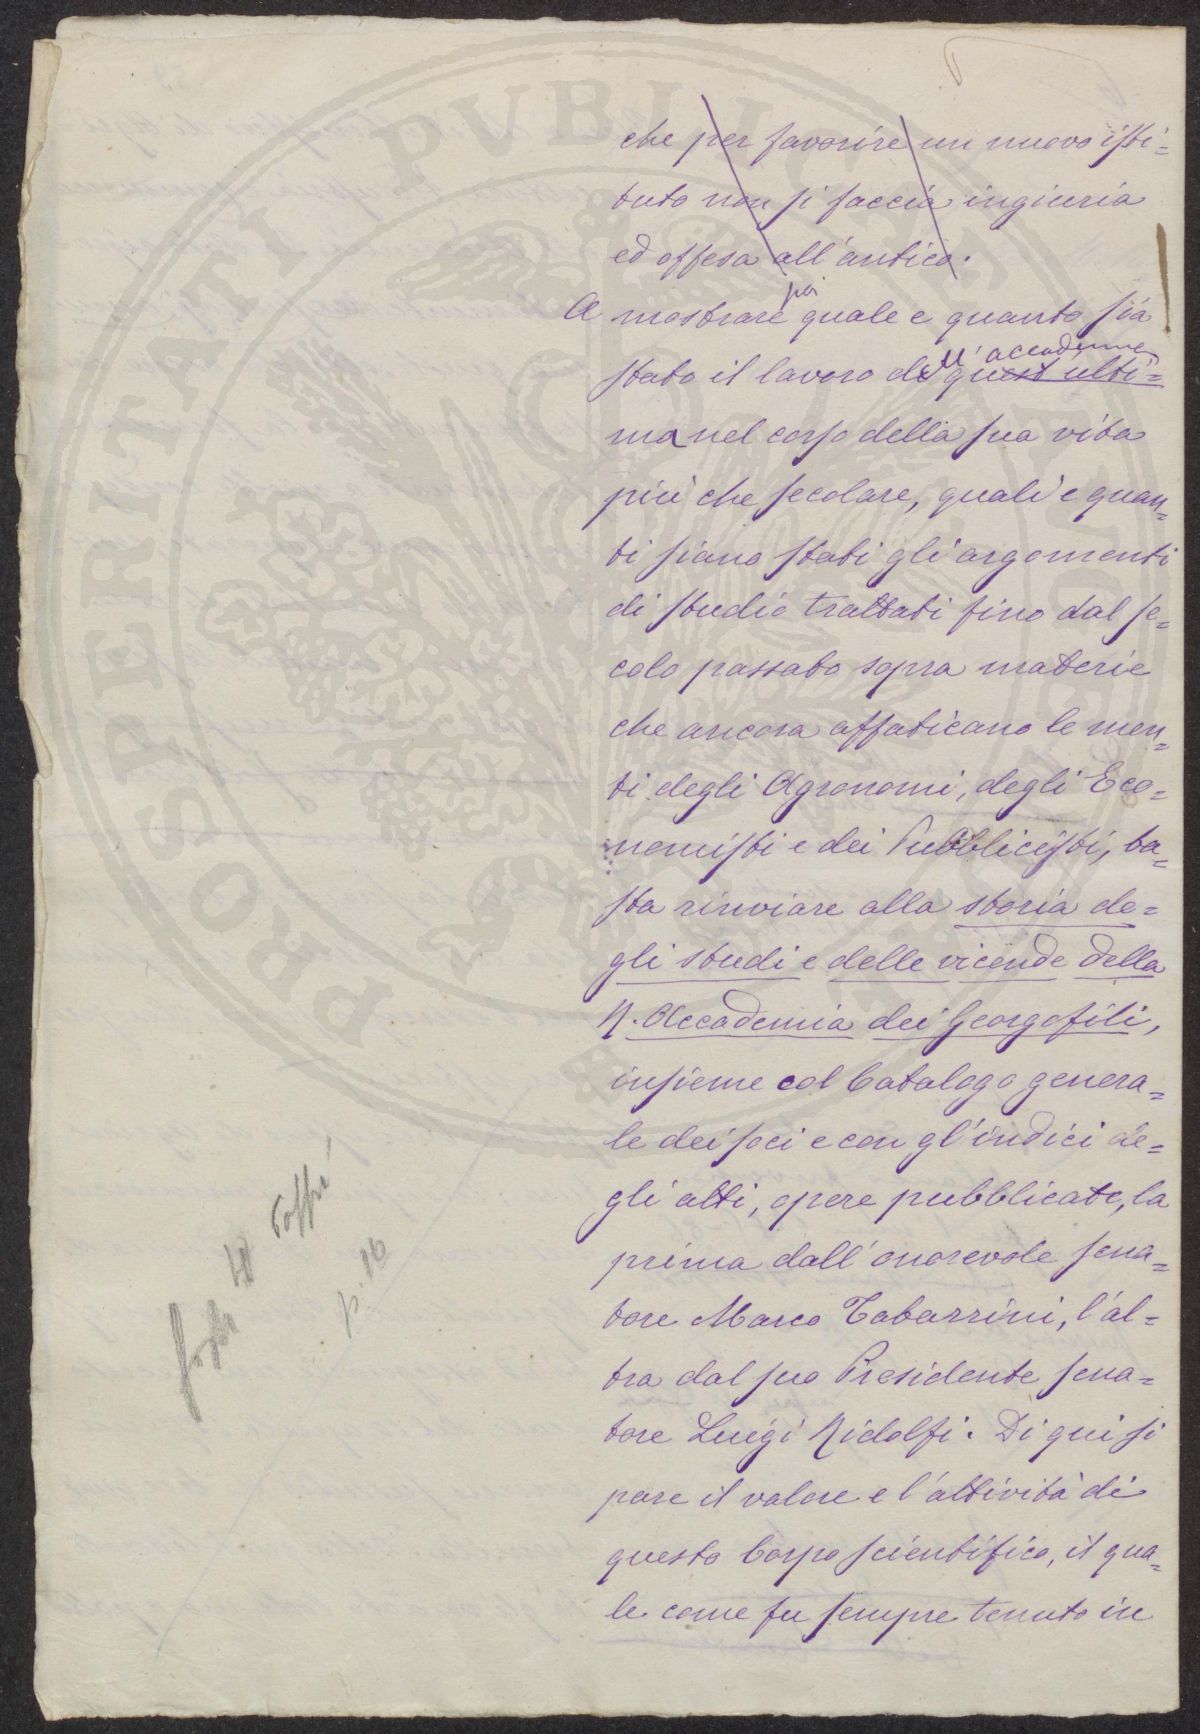 che per favorire un nuovo isti=
tuto non si faccia ingiuria
ed offesa all'antico.
A mostrare poi quale e quanto sia
stato il lavoro dell'accademia quest'ulti=
ma nel corso della sua vita
più che secolare, quali e quan=
ti siano stati gli argomenti
di studio trattati fino dal se=
colo passato sopra materie
che ancora affaticano le men=
ti degli Agronomi, degli Eco=
nomisti e dei Pubblicisti, ba=
sta rinviare alla storia de=
gli studi e delle vicende della
R. Accademia dei Georgofili,
insieme col Catalogo genera=
le dei soci e con gl'indici de=
gli atti, opere pubblicate, la
prima dall'onorevole sena=
tore Marco Tabarrini, l'al=
tra dal suo Presidente sena=
tore Luigi Ridolfi. Di qui si
pare il valore e l'attività di
questo Corpo scientifico, il qua=
le come fu sempre tenuto in
p. 16
PROSPERITATI PVBLICAE